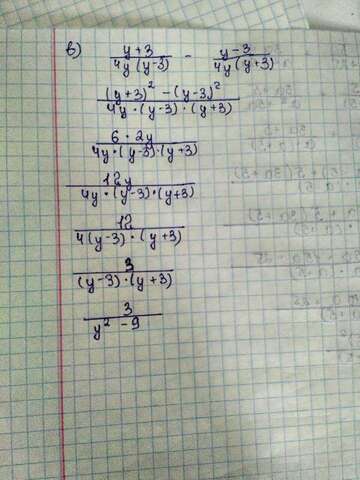 в) (y+3)/(4y(y-3)) - (y-3)/(4y(y+3))
((y+3)² -(y-3)²)/(4y·(y-3)·(y+3))
(6·2y)/(4y·(y-3)·(y+3))
12y/(4y·(y-3)·(y+3))
12/(4(y-3)·(y+3))
3/((y-3)·(y+3))
3/(y² -9)